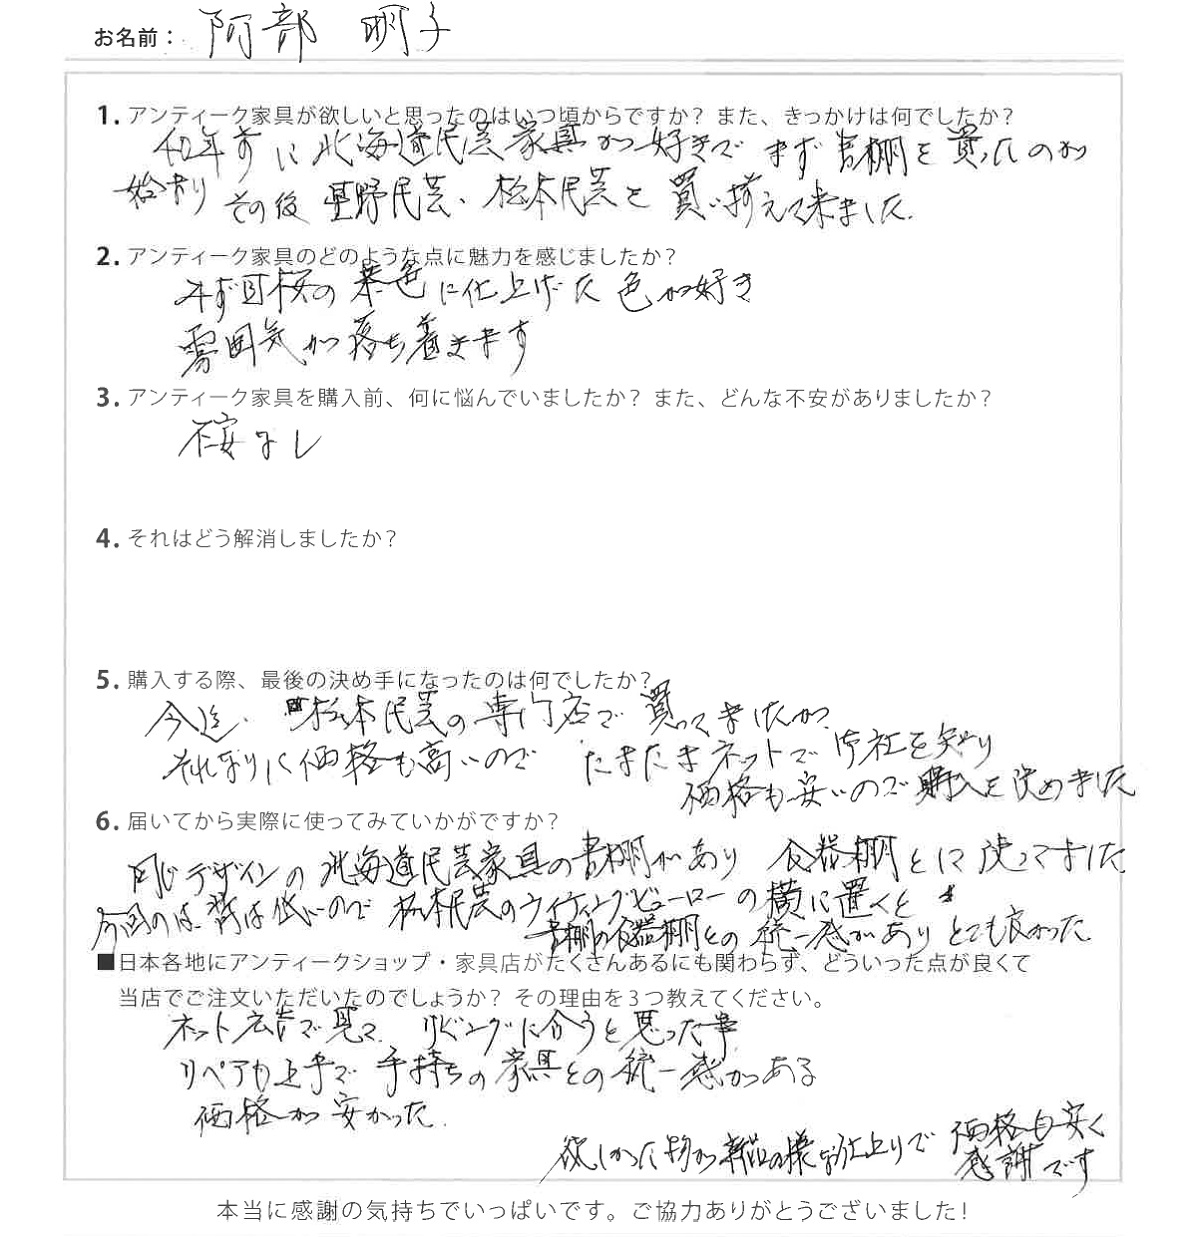 お名前： 阿部 明子
1. アンティーク家具が欲しいと思ったのはいつ頃からですか？ また、きっかけは何でしたか？
40年前に北海道民芸家具が好きで まず書棚を買ったのが
始まり その後 星野民芸、松本民芸を買い揃えて来ました。
2. アンティーク家具のどのような点に魅力を感じましたか？
みず目桜の茶色に仕上げた色が好き
雰囲気が落ち着きます
3. アンティーク家具を購入前、何に悩んでいましたか？ また、どんな不安がありましたか？
不安なし
4. それはどう解消しましたか？
5. 購入する際、最後の決め手になったのは何でしたか？
今迄、松本民芸の専門店で買ってましたが、
それなりに価格も高いので たまたまネットで御社を知り
価格も安いので購入を決めました
6. 届いてから実際に使ってみていかがですか？
同じデザインの北海道民芸家具の書棚があり 食器棚として使ってました
今回のは背は低いので 松本民芸のライティングビューローの横に置くと
書棚の食器棚との統一感がありとても良かった
■日本各地にアンティークショップ・家具店がたくさんあるにも関わらず、どういった点が良くて
当店でご注文いただいたのでしょうか？ その理由を３つ教えてください。
ネット広告で見て、リビングに合うと思った事
リペアも上手で 手持ちの家具との統一感がある
価格が安かった
欲しかった物が新品の様な仕上りで 価格も安く
感謝です
本当に感謝の気持ちでいっぱいです。ご協力ありがとうございました！